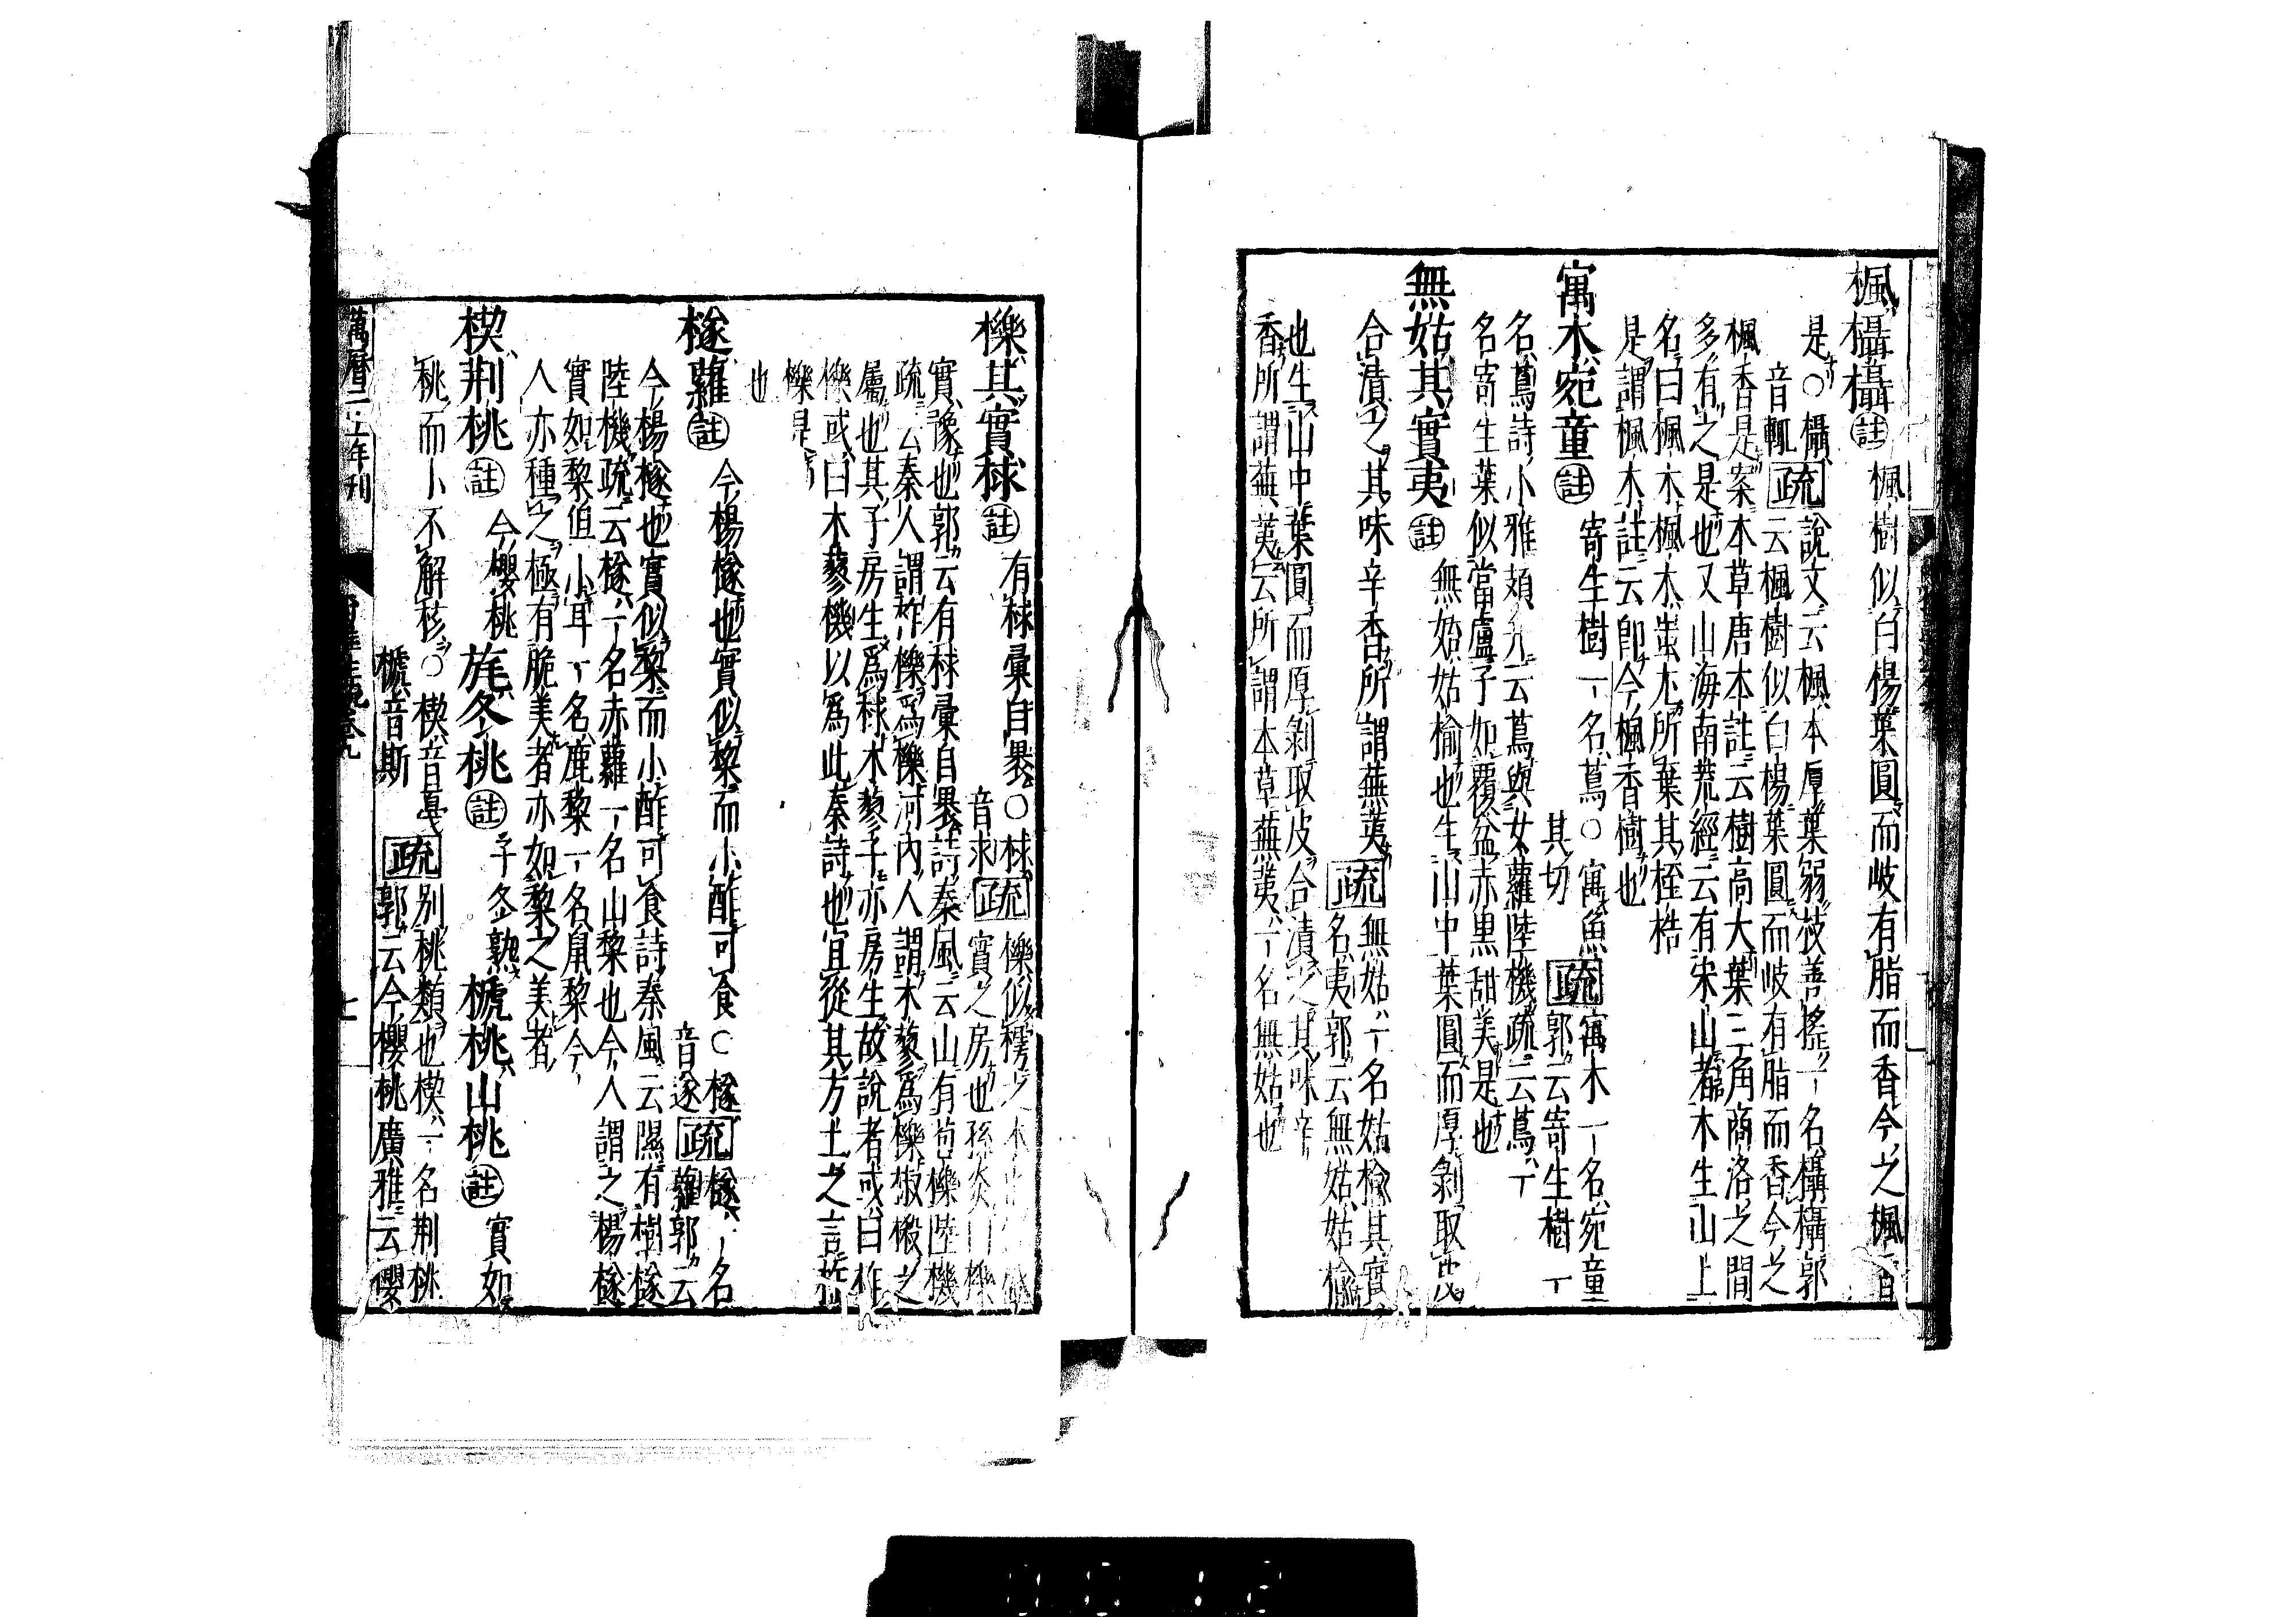 楓欇欇註楓樹似白楊葉圓而歧有脂而香今之楓香
是○欇音輒疏說文云楓木厚葉弱枝善搖一名欇欇郭
云楓樹似白楊葉圓而歧有脂而香今之
楓香是案本草唐本註云樹高大葉三角商洛之間
多有之是也又山海南荒經云有宋山者木生山上
名曰楓木楓木蚩尤所葉其桎梏
是謂楓木註云即今楓香樹也
寓木宛童註寄生樹一名蔦○寓魚其切疏寓木一名宛童
郭云寄生樹一
名蔦詩小雅頍弁云蔦與女蘿陸機疏云蔦一
名寄生葉似當盧子如覆盆赤黑甜美是也
無姑其實夷註無姑姑榆也生山中葉圓而厚剝取皮
合漬之其味辛香所謂蕪荑疏無姑一名姑榆其實
名夷郭云無姑姑榆
也生山中葉圓而厚剝取皮合漬之其味辛
香所謂蕪荑云所謂本草蕪荑一名無姑也
櫟其實梂註有梂彙自裹○梂音求疏櫟似樗之木
實之房也孫炎曰櫟
實豫也郭云有梂彙自裹詩秦風云山有苞櫟陸機
疏云秦人謂柞櫟爲櫟河內人謂木蓼爲櫟椒樧之
屬也其子房生爲梂木蓼子亦房生故說者或曰柞
櫟或曰木蓼機以爲此秦詩也宜從其方土之言柞
櫟是
也
檖蘿註今楊檖也實似棃而小酢可食○檖音遂疏檖一名
蘿郭云
今楊檖也實似棃而小酢可食詩秦風云隰有樹檖
陸機疏云檖一名赤蘿一名山棃也今人謂之楊檖
實如棃但小耳一名鹿棃一名鼠棃今
人亦種之極有脆美者亦如棃之美者
楔荆桃註今櫻桃旄冬桃註子冬熟榹桃山桃註實如
桃而小不解核○楔音戞榹音斯疏別桃類也楔一名荆桃
郭云今櫻桃廣雅云櫻
萬曆二五年刊
七